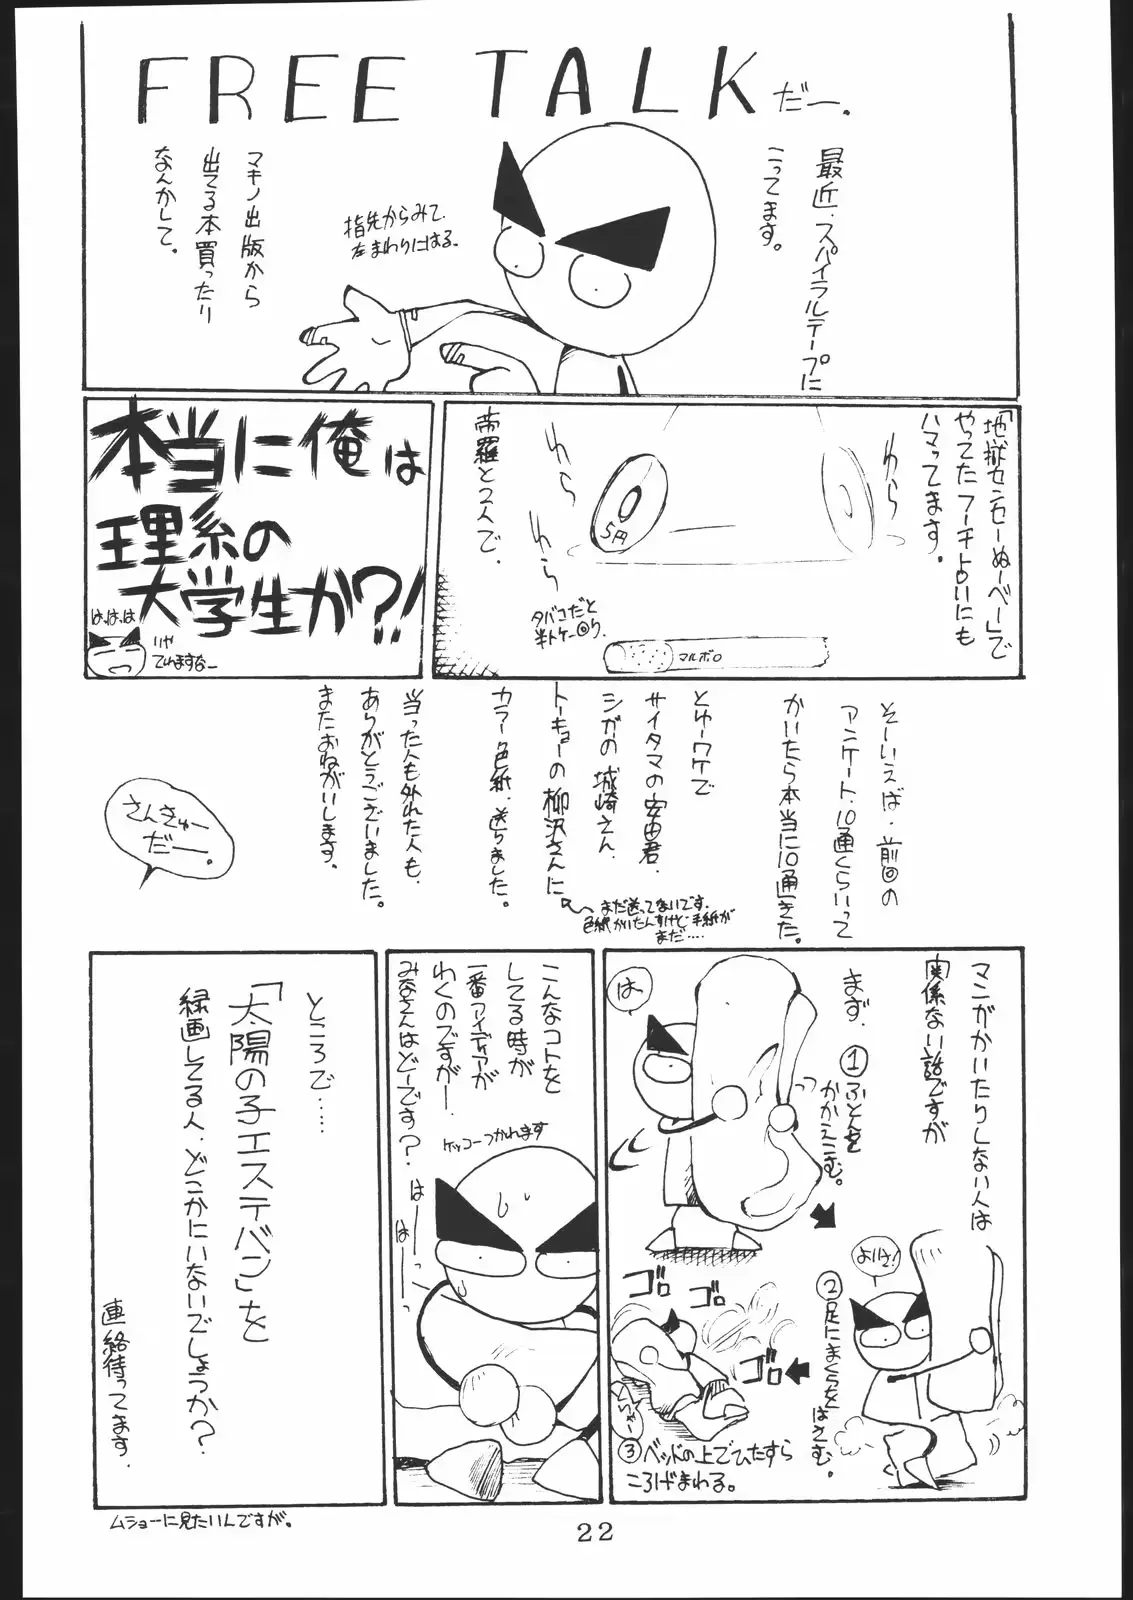 FREE TALK だー。
最近、スパイラルテープに
こってます。
指先からみて、
左まわりにはる。
マキノ出版から
出てる本買ったり
なんかして。
「地獄センセーぬーべー」で
やってたフーチ占いにも
ハマってます。
わら
わら
わら
5円
帝羅と2人で。
タバコだと
マルボロ
本当に俺は
理系の
大学生か?!
は、は、は
りゃ
ていますなー
そーいえば、前回の
アンケート、10通くらいって
かいたら本当に10通きた。
とゆーワケで
サイタマの安由君、
シガの城崎さん、
トーキョーの柳沢さんに
カラー色紙、送りました。
まだ送ってないです。
色紙かいたんすけど手紙が
まだ……
当った人も外れた人も、
ありがとうございました。
またおねがいします。
さんきゅー
だー。
マンガかいたりしない人は
関係ない話ですが
まず、
①ふとんを
かかえこむ。
は
よいせ!
②足にまくらをはさむ。
ゴロ
ゴロ
ゴロ
③ベッドの上でひたすら
ころげまわる。
こんなコトを
してる時が
一番アイディアが
わくのですがー
みなさんはどーです?
ケッコーつかれます
はーーっ
はーーっ
ところで……
「太陽の子エステバン」を
録画してる人、どこかにいないでしょうか?
連絡待ってます。
ムショーに見たいんですが。
22